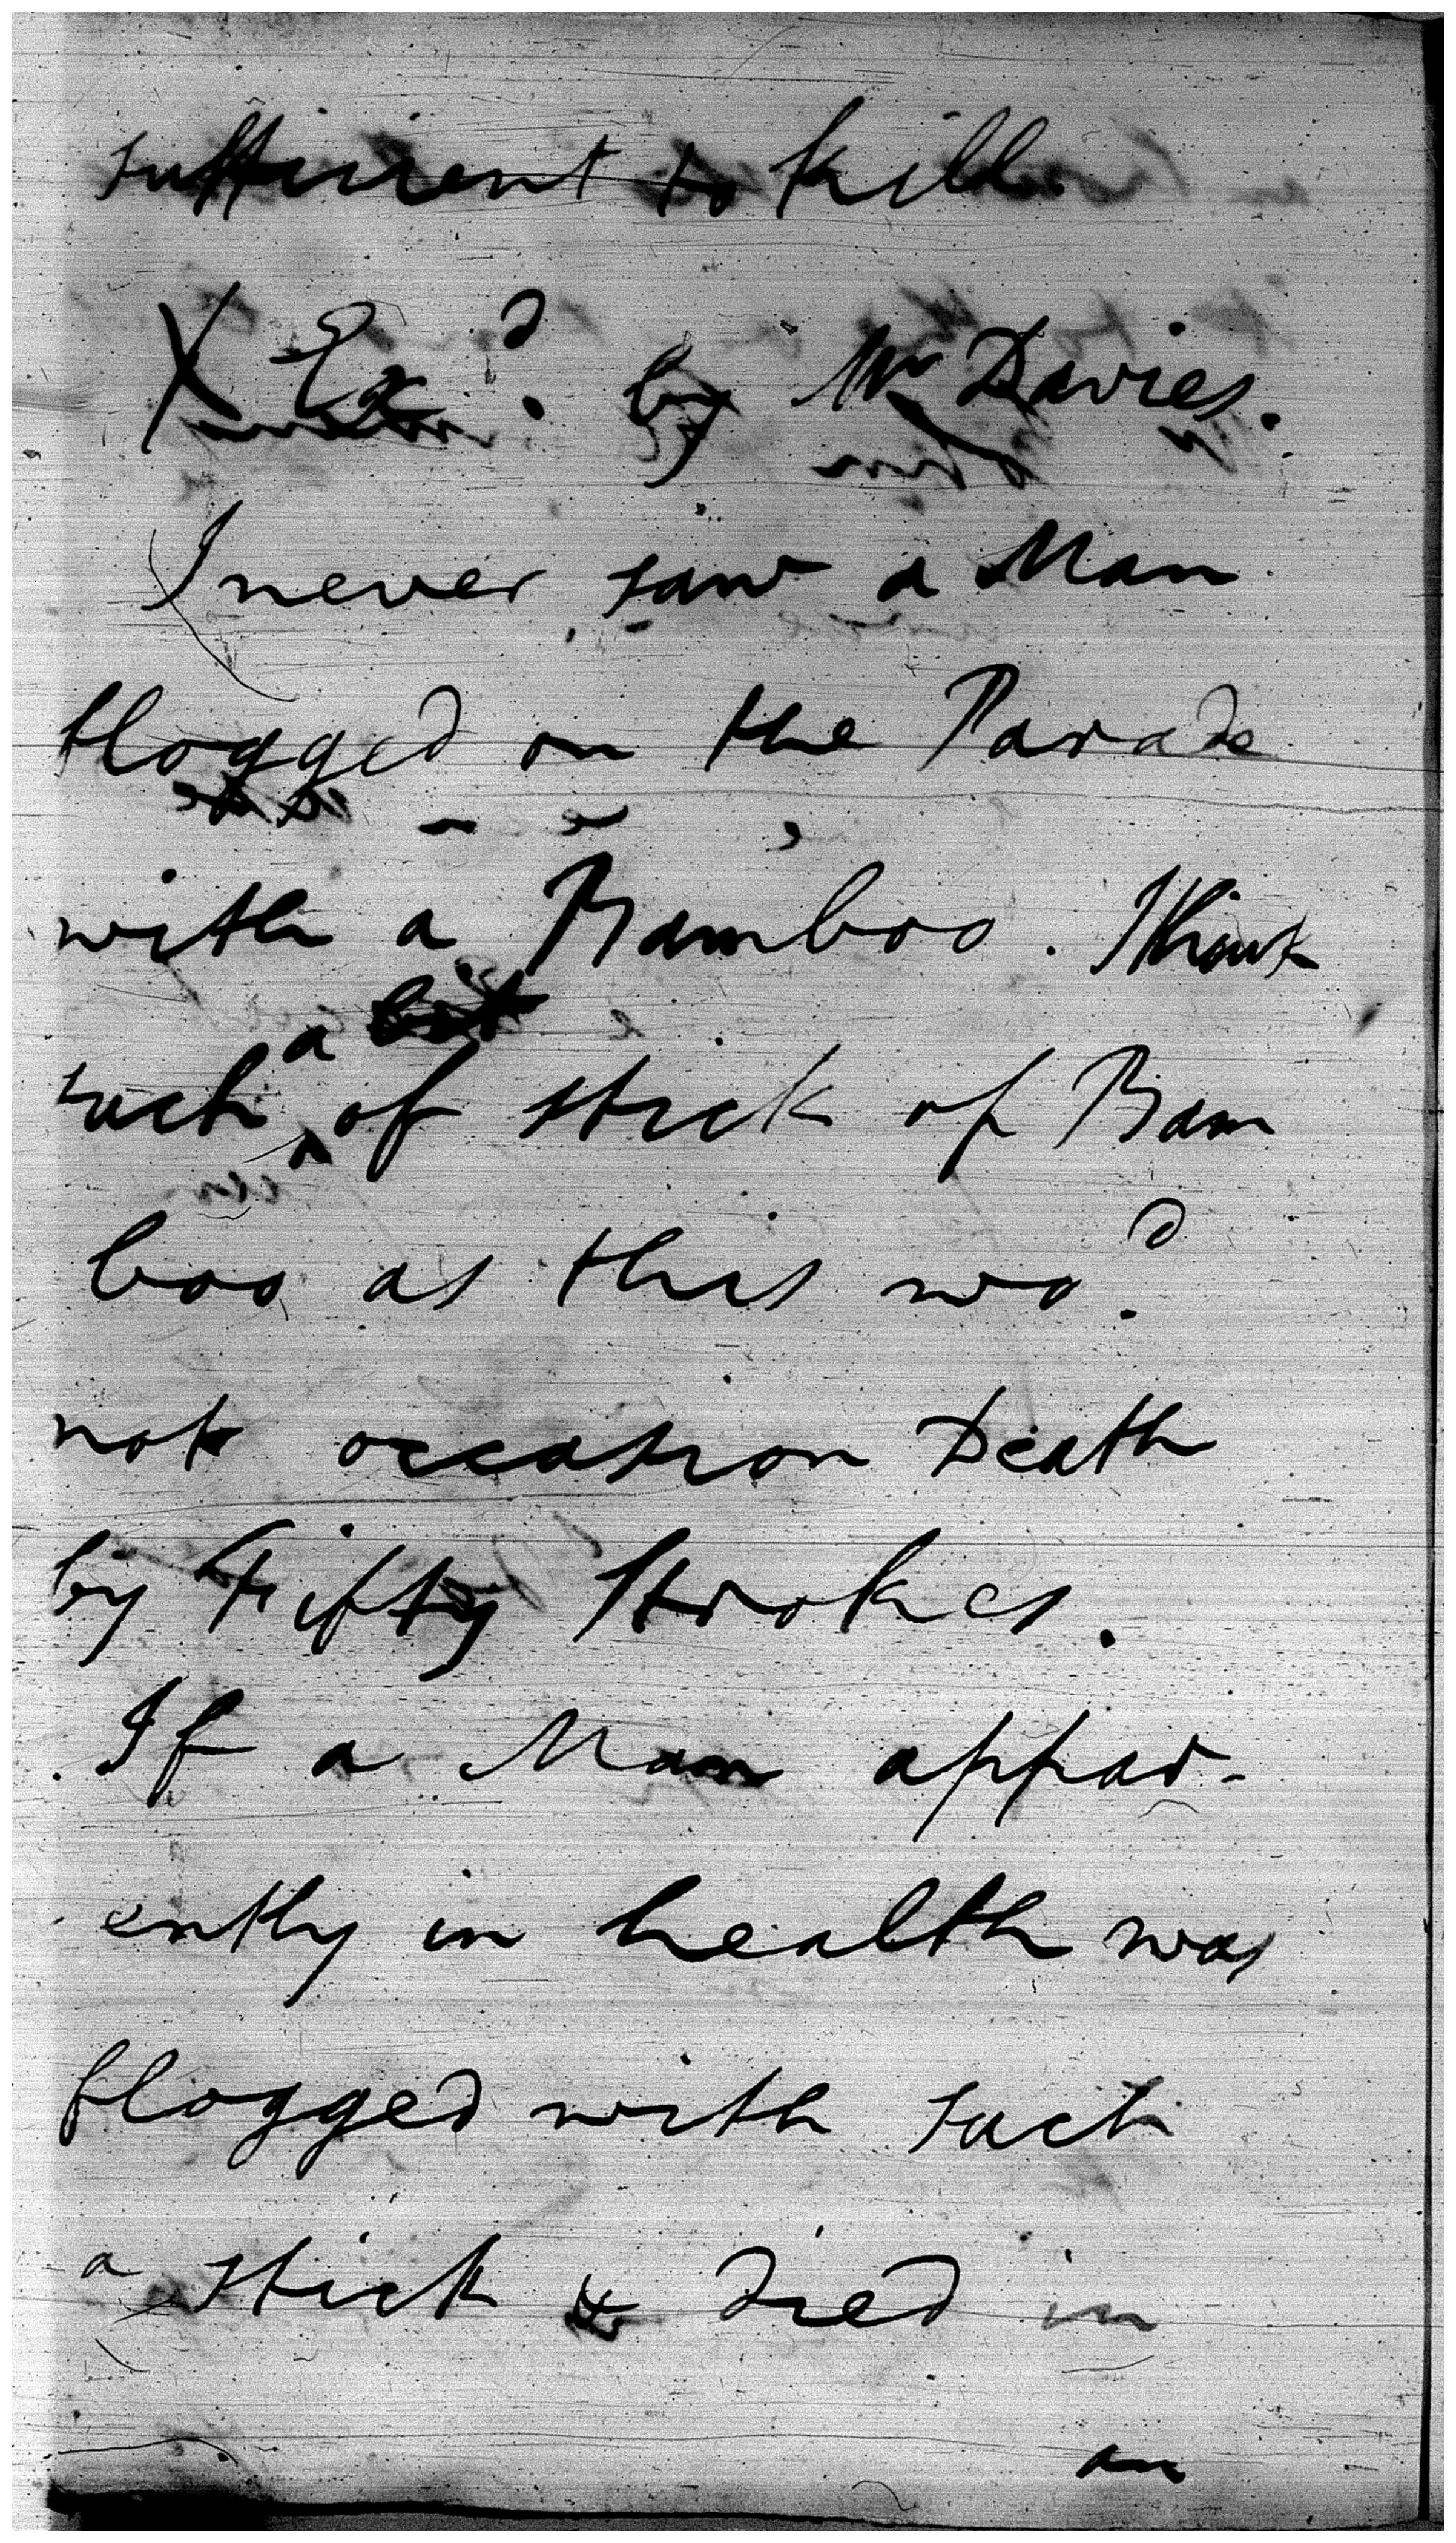 sufficient to kill.
X Exd. by Mr Davies.
I never saw a Man
flogged on the Parade
with a Bamboo. I think
a
such of stick of Bam
boo as this wod.
not occasion Death
by Fifty Strokes.
If a Man appar-
ently in health was
flogged with such
a stick & died in
an